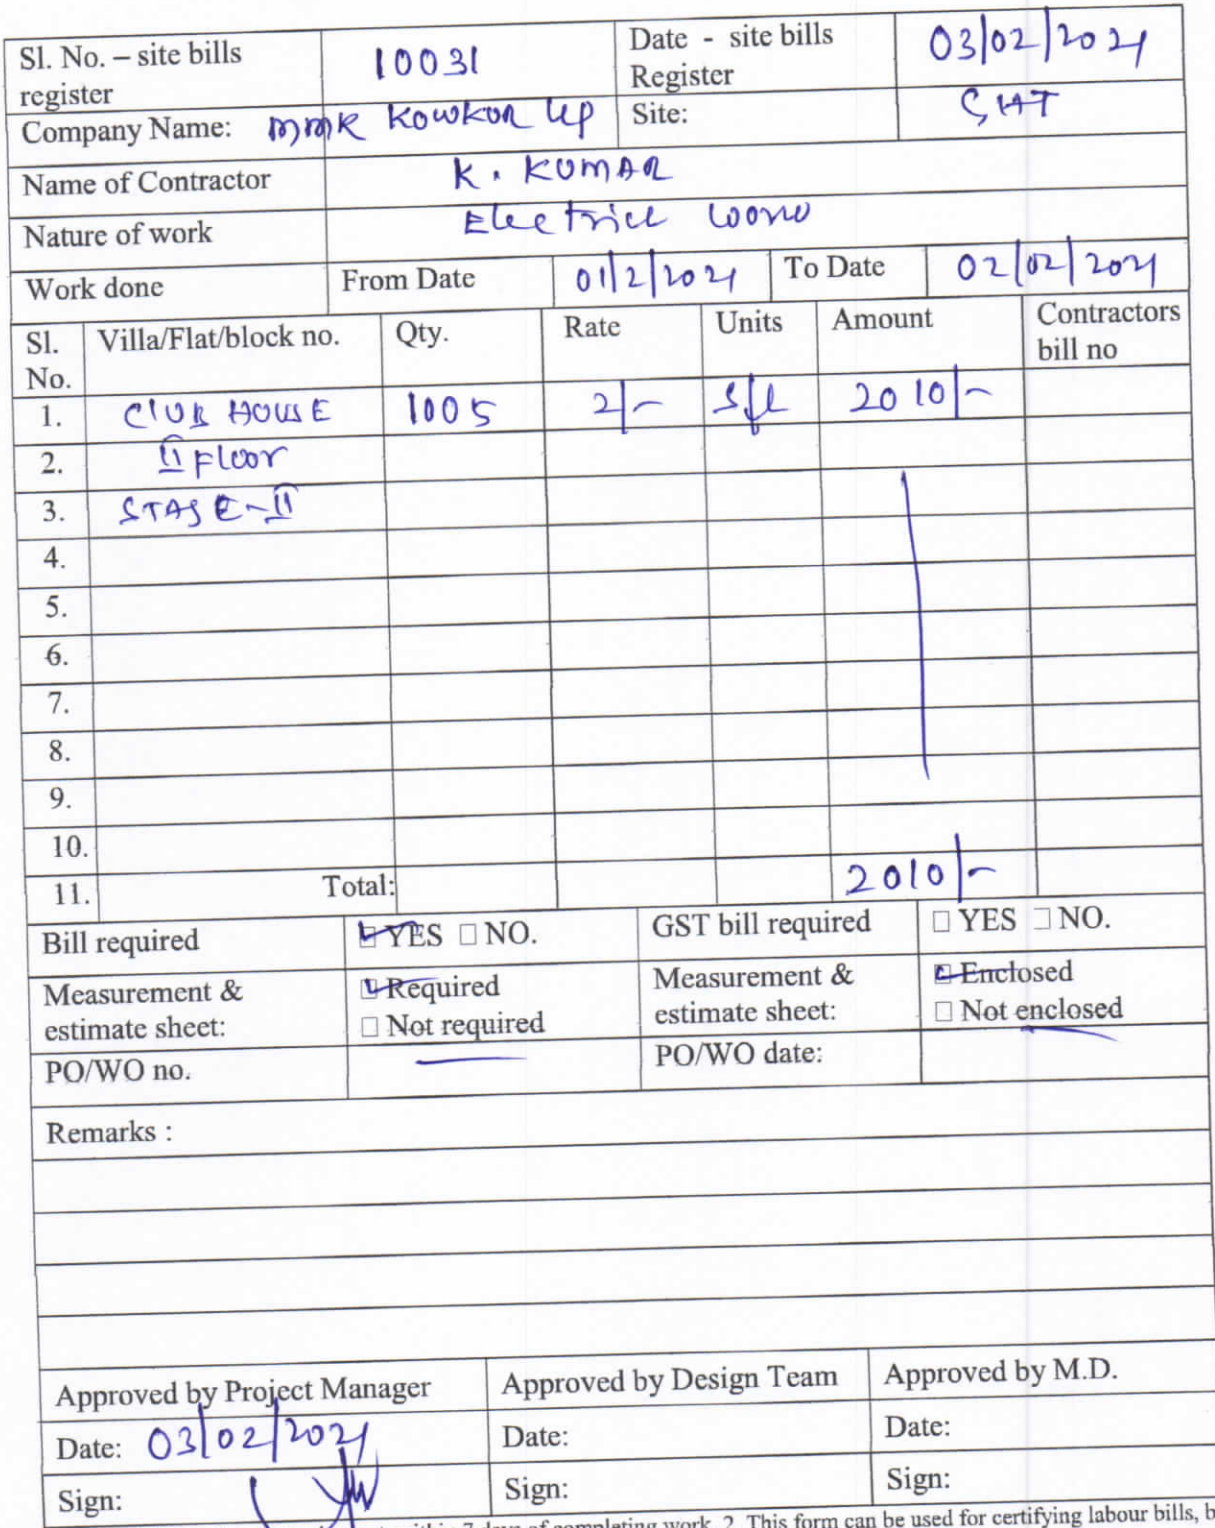 Sl. No. – site bills register 10031 Date - site bills Register 03/02/2021
Company Name: MMR KOWKUR LLP Site: GHT
Name of Contractor K. KUMAR
Nature of work Electrical
Work done From Date 01/2/2021 To Date 02/02/2021
Sl. No. Villa/Flat/block no. Qty. Rate Units Amount Contractors bill no
1. CLUB HOUSE 1005 2/- Sft 2010/-
2. II Floor
3. STAGE-II
4.
5.
6.
7.
8.
9.
10.
11. Total: 2010/-
Bill required ☑ YES ☐ NO. GST bill required ☐ YES ☐ NO.
Measurement & estimate sheet: ☑ Required ☐ Not required Measurement & estimate sheet: ☑ Enclosed ☐ Not enclosed
PO/WO no. PO/WO date:
Remarks :
Approved by Project Manager Approved by Design Team Approved by M.D.
Date: 03/02/2021 Date: Date:
Sign: Sign: Sign:
within 7 days of completing work. 2. This form can be used for certifying labour bills, b